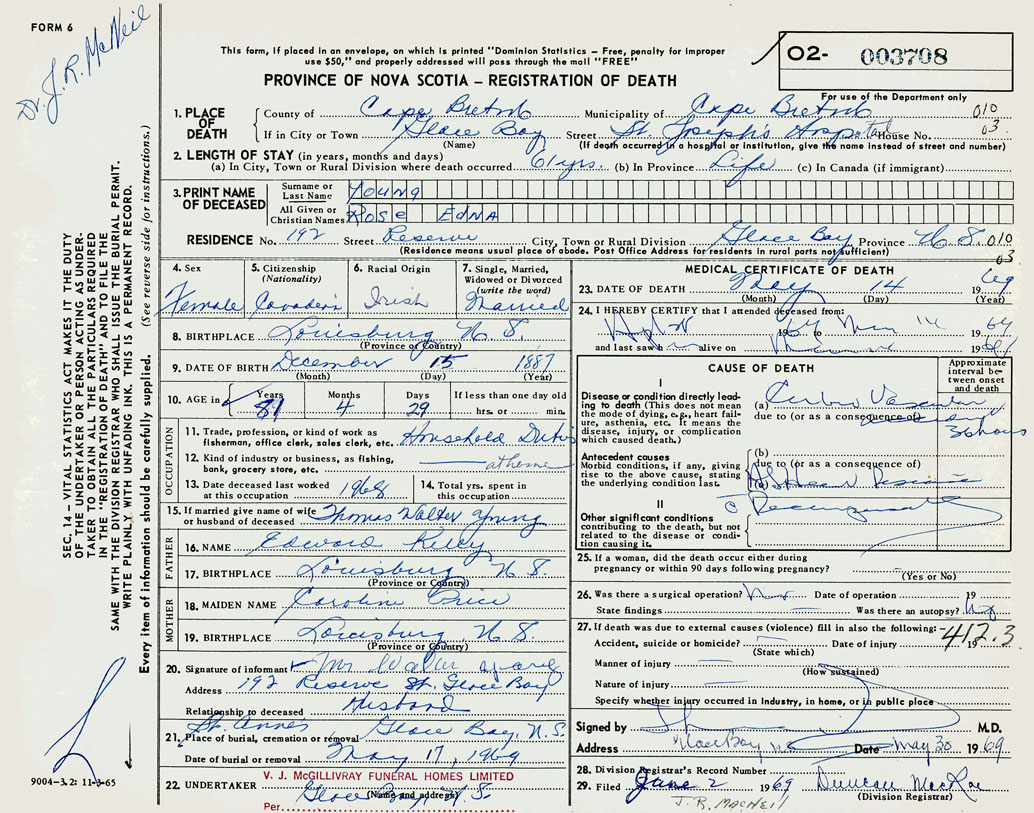 FORM 6
Dr. J. R. McNeil
This form, if placed in an envelope, on which is printed "Dominion Statistics – Free, penalty for improper
use $50," and properly addressed will pass through the mail "FREE"
PROVINCE OF NOVA SCOTIA – REGISTRATION OF DEATH
02- 003708
For use of the Department only
1. PLACE OF DEATH
County of Cape Breton Municipality of Cape Breton 010
If in City or Town Glace Bay Street St. Joseph's Hospital House No. 03
(Name) (If death occurred in a hospital or institution, give the name instead of street and number)
2. LENGTH OF STAY (in years, months and days)
(a) In City, Town or Rural Division where death occurred 61 yrs. (b) In Province Life (c) In Canada (if immigrant)
3. PRINT NAME OF DECEASED
Surname or Last Name Young
All Given or Christian Names Rose Edna
RESIDENCE No. 192 Street Reserve City, Town or Rural Division Glace Bay Province N. S. 010
(Residence means usual place of abode. Post Office Address for residents in rural parts not sufficient) 03
4. Sex
Female
5. Citizenship
(Nationality)
6. Racial Origin
Irish
7. Single, Married,
Widowed or Divorced
(write the word)
Married
8. BIRTHPLACE Louisburg N. S.
(Province or Country)
9. DATE OF BIRTH December 15 1887
(Month) (Day) (Year)
10. AGE in Years Months Days If less than one day old
81 4 29 hrs. or min.
OCCUPATION
11. Trade, profession, or kind of work as
fisherman, office clerk, sales clerk, etc. Household Duties
12. Kind of industry or business, as fishing,
bank, grocery store, etc. at home
13. Date deceased last worked
at this occupation 1968
14. Total yrs. spent in
this occupation
15. If married give name of wife
or husband of deceased Thomas Walter Young
FATHER
16. NAME Edward
17. BIRTHPLACE Louisburg N. S.
(Province or Country)
MOTHER
18. MAIDEN NAME Caroline Price
19. BIRTHPLACE Louisburg, N. S.
(Province or Country)
20. Signature of informant Mr Walter Young
Address 192 Reserve St. Glace Bay
Relationship to deceased Husband
21. Place of burial, cremation or removal St. Anne's Glace Bay, N. S.
Date of burial or removal May 17, 1969
22. UNDERTAKER V. J. McGILLIVRAY FUNERAL HOMES LIMITED
Glace Bay, N. S.
(Name and address)
Per.
MEDICAL CERTIFICATE OF DEATH
23. DATE OF DEATH May 14 1969
(Month) (Day) (Year)
24. I HEREBY CERTIFY that I attended deceased from:
19 to May 14 19
and last saw h alive on 19
CAUSE OF DEATH
Approximate
interval be-
tween onset
and death
I
Disease or condition directly lead-
ing to death (This does not mean
the mode of dying, e.g., heart fail-
ure, asthenia, etc. It means the
disease, injury, or complication
which caused death.)
(a)
due to (or as a consequence of)
36 hours
Antecedent causes
Morbid conditions, if any, giving
rise to the above cause, stating
the underlying condition last.
(b)
due to (or as a consequence of)
(c)
II
Other significant conditions
contributing to the death, but not
related to the disease or condi-
tion causing it.
25. If a woman, did the death occur either during
pregnancy or within 90 days following pregnancy?
(Yes or No)
26. Was there a surgical operation? Date of operation 19
State findings Was there an autopsy? No
27. If death was due to external causes (violence) fill in also the following:
412.3
Accident, suicide or homicide? Date of injury 19
(State which)
Manner of injury
(How sustained)
Nature of injury
Specify whether injury occurred in Industry, in home, or in public place
Signed by M.D.
Address Glace Bay Date May 30 1969
28. Division Registrar's Record Number
29. Filed June 2 1969 Duncan MacRae
(Division Registrar)
J. R. MACNEIL
SEC. 14 – VITAL STATISTICS ACT MAKES IT THE DUTY
OF THE UNDERTAKER OR PERSON ACTING AS UNDER-
TAKER TO OBTAIN ALL THE PARTICULARS REQUIRED
IN THE "REGISTRATION OF DEATH" AND TO FILE THE
SAME WITH THE DIVISION REGISTRAR WHO SHALL ISSUE THE BURIAL PERMIT.
WRITE PLAINLY WITH UNFADING INK. THIS IS A PERMANENT RECORD.
Every item of information should be carefully supplied. (See reverse side for instructions.)
9004-3.2: 11-3-65